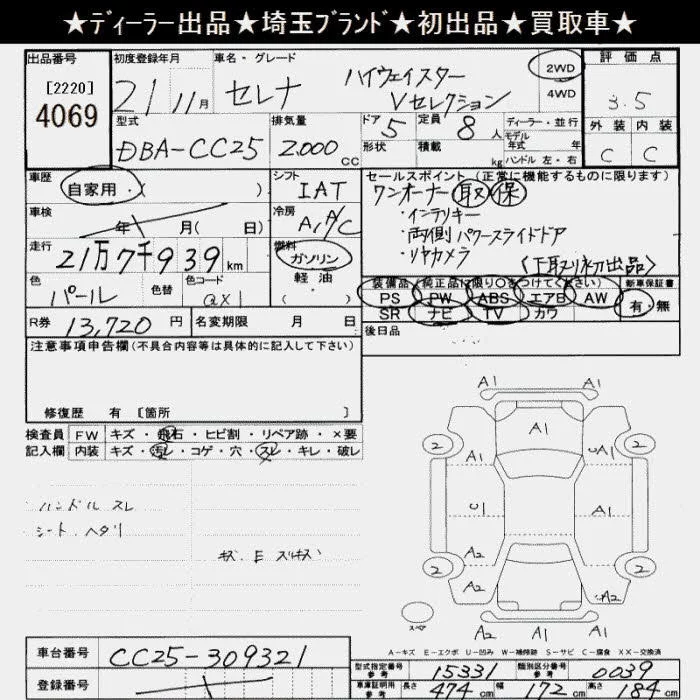 ★ディーラー出品★埼玉ブランド★初出品★買取車★
出品番号 初度登録年月 車名・グレード 評価点
[2220] 4069
21 11月 セレナ ハイウェイスター Vセレクション
2WD 4WD
3.5
型式 排気量 ドア 5 定員 8人 ディーラー・並行
DBA-CC25 2.000cc 形状 積載 kg モデル年式 ハンドル 左・右
外装 内装
C C
車歴 自家用・( ) シフト IAT
セールスポイント (正常に機能するものに限ります)
ワンオーナー 取 保
・インテリキー
・両側パワースライドドア
・リヤカメラ
〈下取り初出品〉
車検 年 月( 日) 冷房 A/A/C
走行 21万7千939km 燃料 ガソリン 軽油 ( )
色 パール 色替 色コード QX1
装備品 (純正品に限り○をつけてください) 新車保証書
PS PW ABS エアB AW 有・無
SR ナビ TV カワ
R券 13,720円 名変期限 月 日
後日品
注意事項申告欄(不具合内容等は具体的に記入して下さい)
修復歴 有 [箇所 ]
検査員 FW キズ・飛石・ヒビ割・リペア跡・×要
記入欄 内装 キズ・汚レ・コゲ・穴・スレ・キレ・破レ
ハンドル スレ
シート ヘタリ
キズ、E
A1 A1
A1
2 2
A1 A1
U1 A1
A2 A1
2 2
A2 A2
A2 A2
スペア
A-キズ E-エクボ U-凹み W-補修跡 S-サビ C-腐食 XX-交換済
車台番号 CC25-309321
登録番号
型式指定番号 参考 15331 類別区分番号 参考 0039
車庫証明用 参考 長さ 474cm 幅 172cm 高さ 84cm